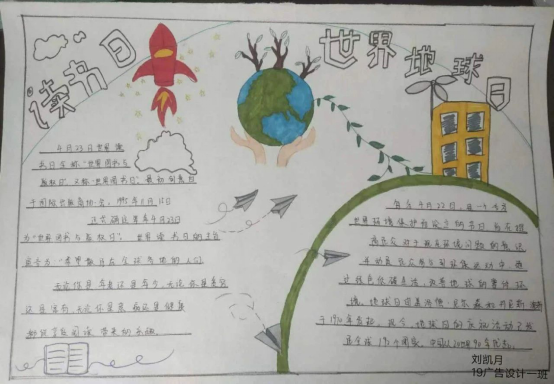 读书日
世界地球日
4月23日世界读
书日全称"世界图书与
版权日"，又称"世界图书日"，最初的创意
于国际出版商协会，1995年11月15日
正式确定每年4月23日
为"世界图书与版权日"，
在全球各地的人们
无论你是年老还是年少，无论你是贫穷
还是富有，无论你是患病还是健康
都能享受阅读带来的乐趣。
每年4月22日，是一个专为
世界环境保护而设立的节日，旨在提
高民众对于现有环境问题的意识
并动员民众参与到环保运动中，通
过绿色低碳生活，改善地球的整体环
境。地球日由盖洛德·尼尔森和
于1970年发起。现今，地球日的庆祝活动已发
至全球192个国家，
刘凯月
19广告设计一班